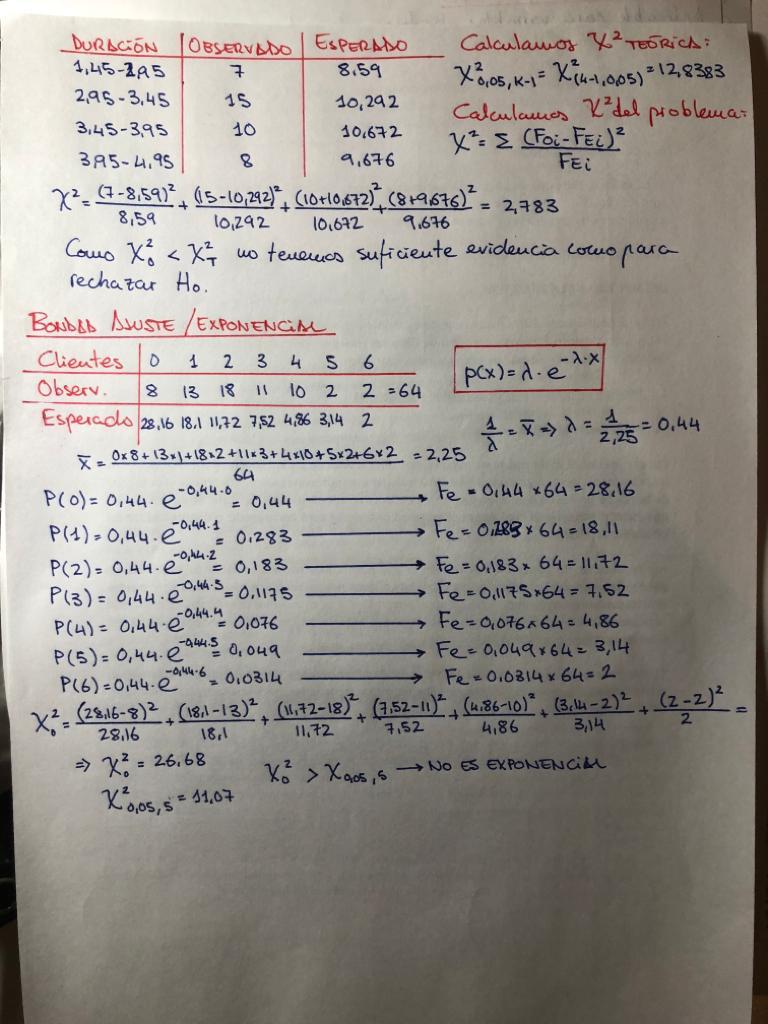 DURACIÓN | OBSERVADO | ESPERADO
1,45-2,95 | 7 | 8,59
2,95-3,45 | 15 | 10,292
3,45-3,95 | 10 | 10,672
3,95-4,95 | 8 | 9,676
Calculamos χ² TEÓRICA:
χ²0,05, K-1 = χ²(4-1, 0,05) = 12,8383
Calculamos χ² del problema:
χ² = Σ (Foi-FEi)² / FEi
χ² = (7-8,59)²/8,59 + (15-10,292)²/10,292 + (10+10,672)²/10,672 + (8+9,676)²/9,676 = 2,783
Como χ²o < χ²T no tenemos suficiente evidencia como para
rechazar Ho.
BONDAD AJUSTE / EXPONENCIAL
Clientes | 0 1 2 3 4 5 6
Observ. | 8 13 18 11 10 2 2 =64
Esperado | 28,16 18,1 11,72 7,52 4,86 3,14 2
p(x) = λ · e^-λ·x
1/λ = x̄ ⇒ λ = 1/2,25 = 0,44
x̄ = (0x8+13x1+18x2+11x3+4x10+5x2+6x2)/64 = 2,25
P(0) = 0,44 · e^-0,44·0 = 0,44 → Fe = 0,44 x 64 = 28,16
P(1) = 0,44 · e^-0,44·1 = 0,283 → Fe = 0,283 x 64 = 18,11
P(2) = 0,44 · e^-0,44·2 = 0,183 → Fe = 0,183 x 64 = 11,72
P(3) = 0,44 · e^-0,44·3 = 0,1175 → Fe = 0,1175 x 64 = 7,52
P(4) = 0,44 · e^-0,44·4 = 0,076 → Fe = 0,076 x 64 = 4,86
P(5) = 0,44 · e^-0,44·5 = 0,049 → Fe = 0,049 x 64 = 3,14
P(6) = 0,44 · e^-0,44·6 = 0,0314 → Fe = 0,0314 x 64 = 2
χ²o = (28,16-8)²/28,16 + (18,1-13)²/18,1 + (11,72-18)²/11,72 + (7,52-11)²/7,52 + (4,86-10)²/4,86 + (3,14-2)²/3,14 + (2-2)²/2 =
⇒ χ²o = 26,68 χ²o > χ0,05, 5 → NO ES EXPONENCIAL
χ²0,05, 5 = 11,07